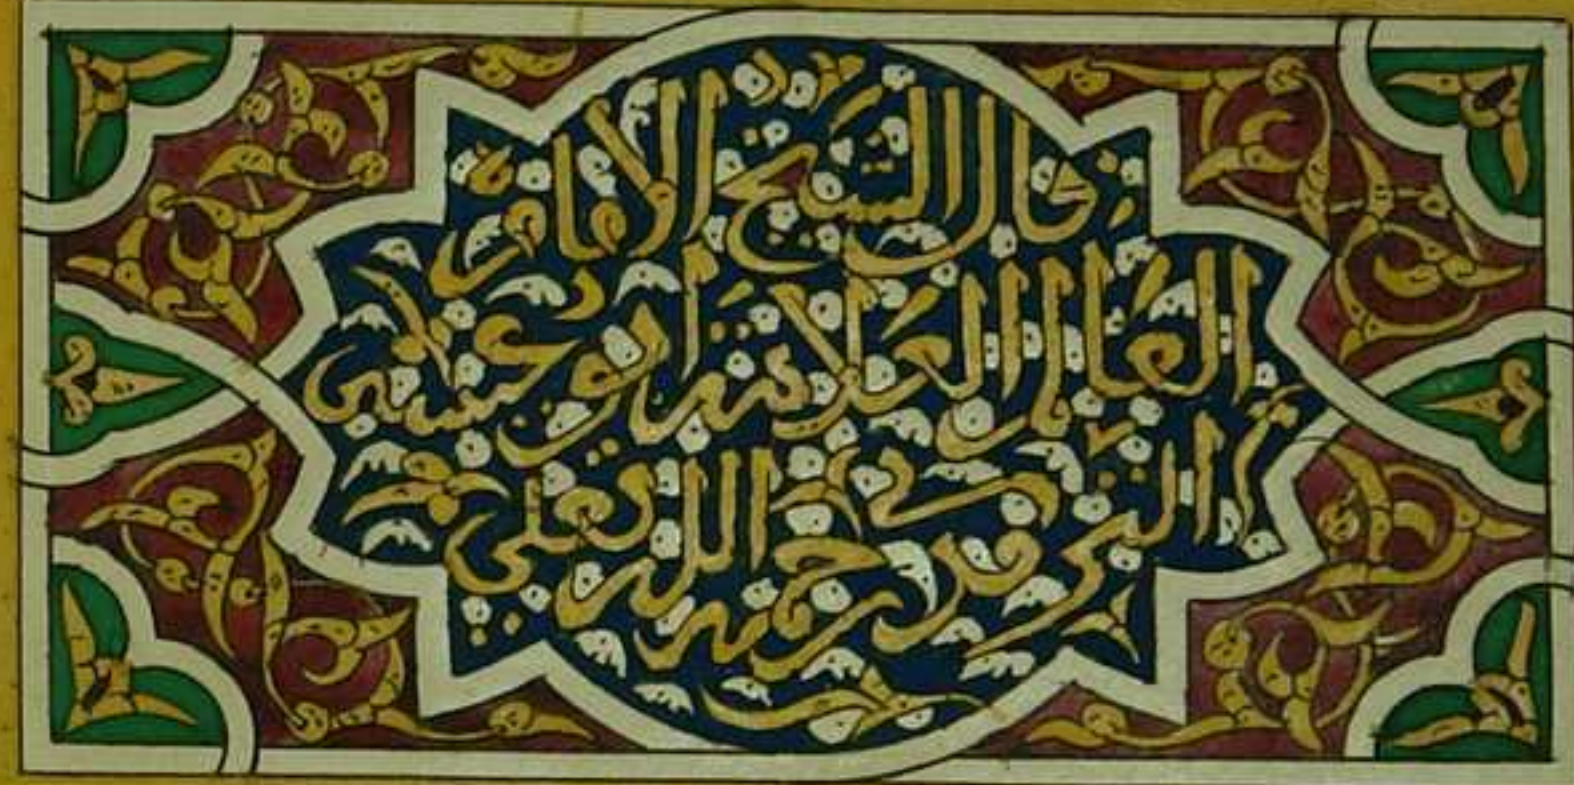 قال الشيخ الامام
العالم العلامة ابو عيسى
الترمدي رحمه الله تعلى